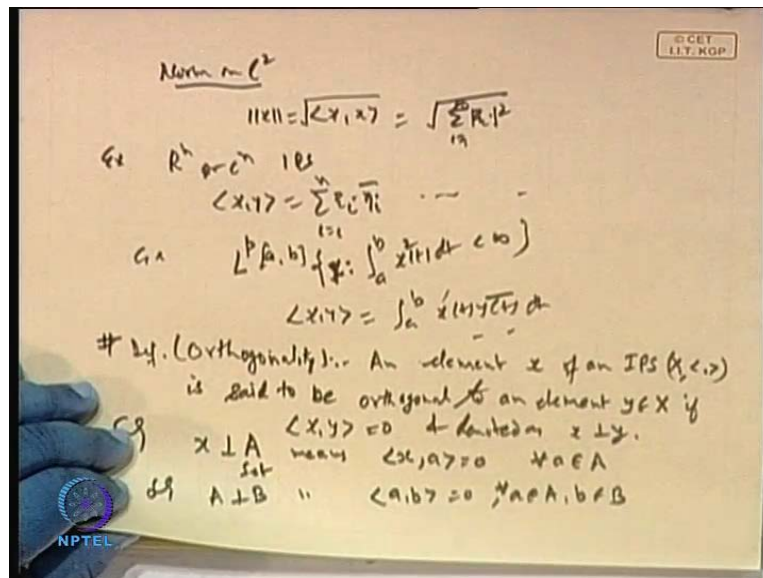 © CET
I.I.T. KGP
Norm on l²
||x|| = √<x, x> = √∑_{i=1}^{∞} |ξi|²
Ex R^n or C^n IPS
<x, y> = ∑_{i=1}^{n} ξi η̄i
Ex L^p[a, b] {x: ∫_a^b x²(t) dt < ∞}
<x, y> = ∫_a^b x(t) y(t)‾ dt
# Def. (Orthogonality):- An element x of an IPS (X, <,>)
is said to be orthogonal to an element y ∈ X if
<x, y> = 0 & denoted as x ⊥ y.
x ⊥ A means <x, a> = 0 ∀ a ∈ A
Set
A ⊥ B " <a, b> = 0, ∀ a ∈ A, b ∈ B
NPTEL